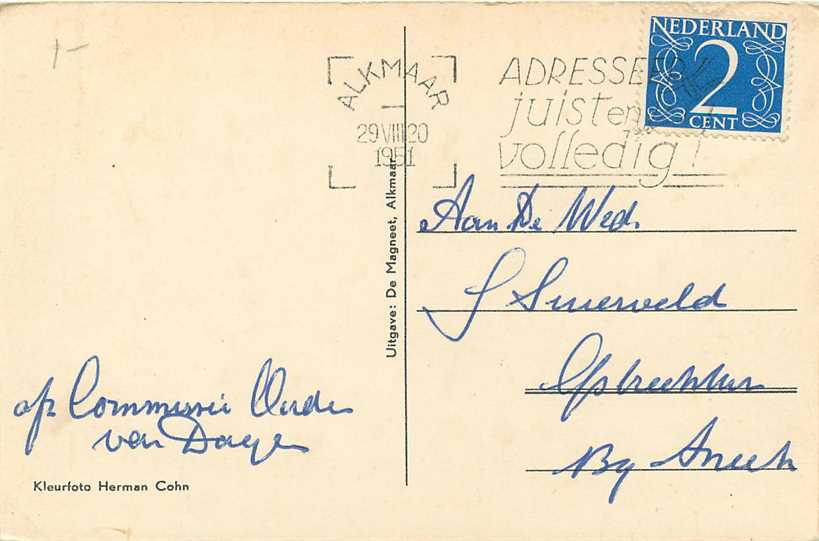 1-
ALKMAAR
29 VIII 20
1951
ADRESSEER
juist en
volledig!
NEDERLAND
2
CENT
Aan De Wed.
Uitgave: De Magneet, Alkmaar
op Commissie
van
By Sneek
Kleurfoto Herman Cohn